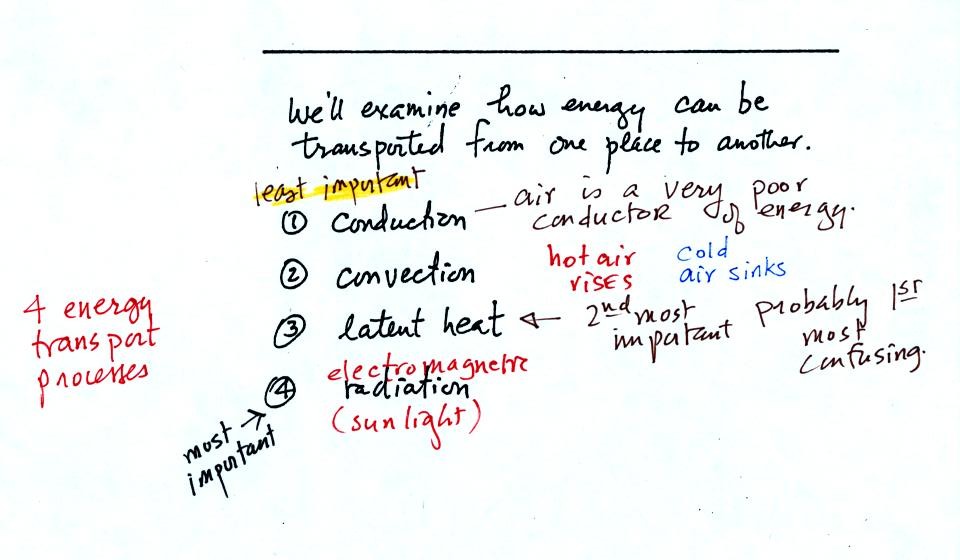 We'll examine how energy can be
transported from one place to another.
least important
① conduction — air is a very poor
conductor of energy.
② convection
hot air
rises
cold
air sinks
③ latent heat ← 2nd most
important
probably 1st
most
confusing.
4 energy
transport
processes
electromagnetic
④ radiation
(sunlight)
most →
important